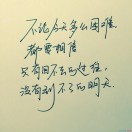 不论今天多么困难
都要相信
只有回不去的过往
没有到不了的明天.